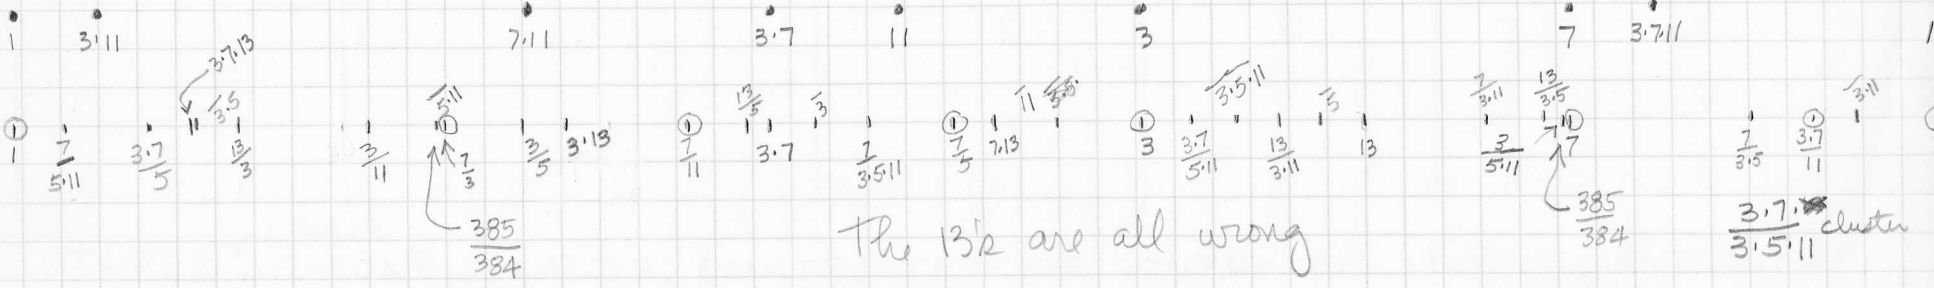 1 3·11 7·11 3·7 11 3 7 3·7·11 1
3·7·13
/3·5 /5·11 13/5 /3 /11 /3·5·11 /5 7/3·11 13/3·5 /3·11
1 7/5·11 3·7/5 11 13/3 3/11 7/3 3/5 3·13 7/11 3·7 7/3·5·11 7/5 7·13 3 3·7/5·11 13/3·11 13 3/5·11 7 7/3·5 3·7/11
385/384 The 13's are all wrong 385/384 3·7·/3·5·11 cluster